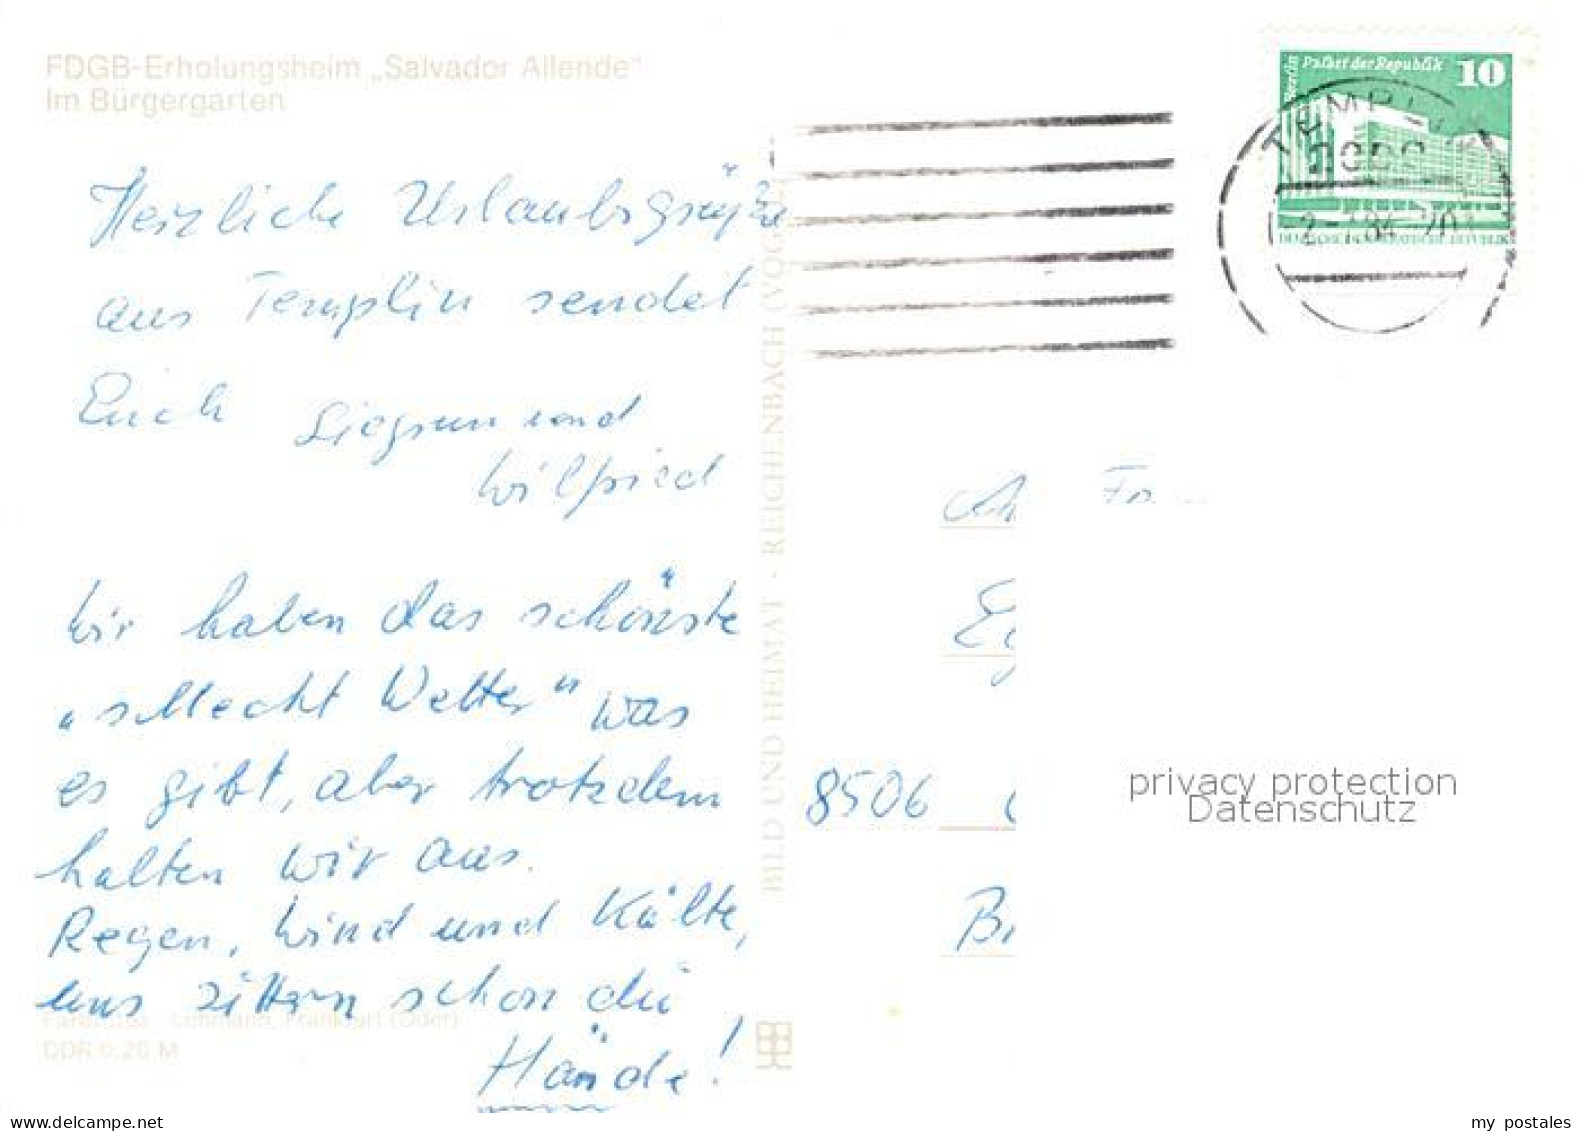 FDGB-Erholungsheim „Salvador Allende“
Im Bürgergarten
Herzliche Urlaubsgrüße
aus Templin sendet
Euch Siegrun und
Wilfried
Wir haben das schönste
„schlecht Wetter“ was
es gibt, aber trotzdem
halten wir aus.
Regen, Wind und Kälte,
uns zittern schon die
Hände!
Lehmann, Frankfurt (Oder)
DDR 0,20 M
BILD UND HEIMAT · REICHENBACH (VOG
Berlin Palast der Republik 10
DEUTSCHE DEMOKRATISCHE REPUBLIK
TEMPLIN
An Fa
8506
privacy protection
Datenschutz
www.delcampe.net
my postales